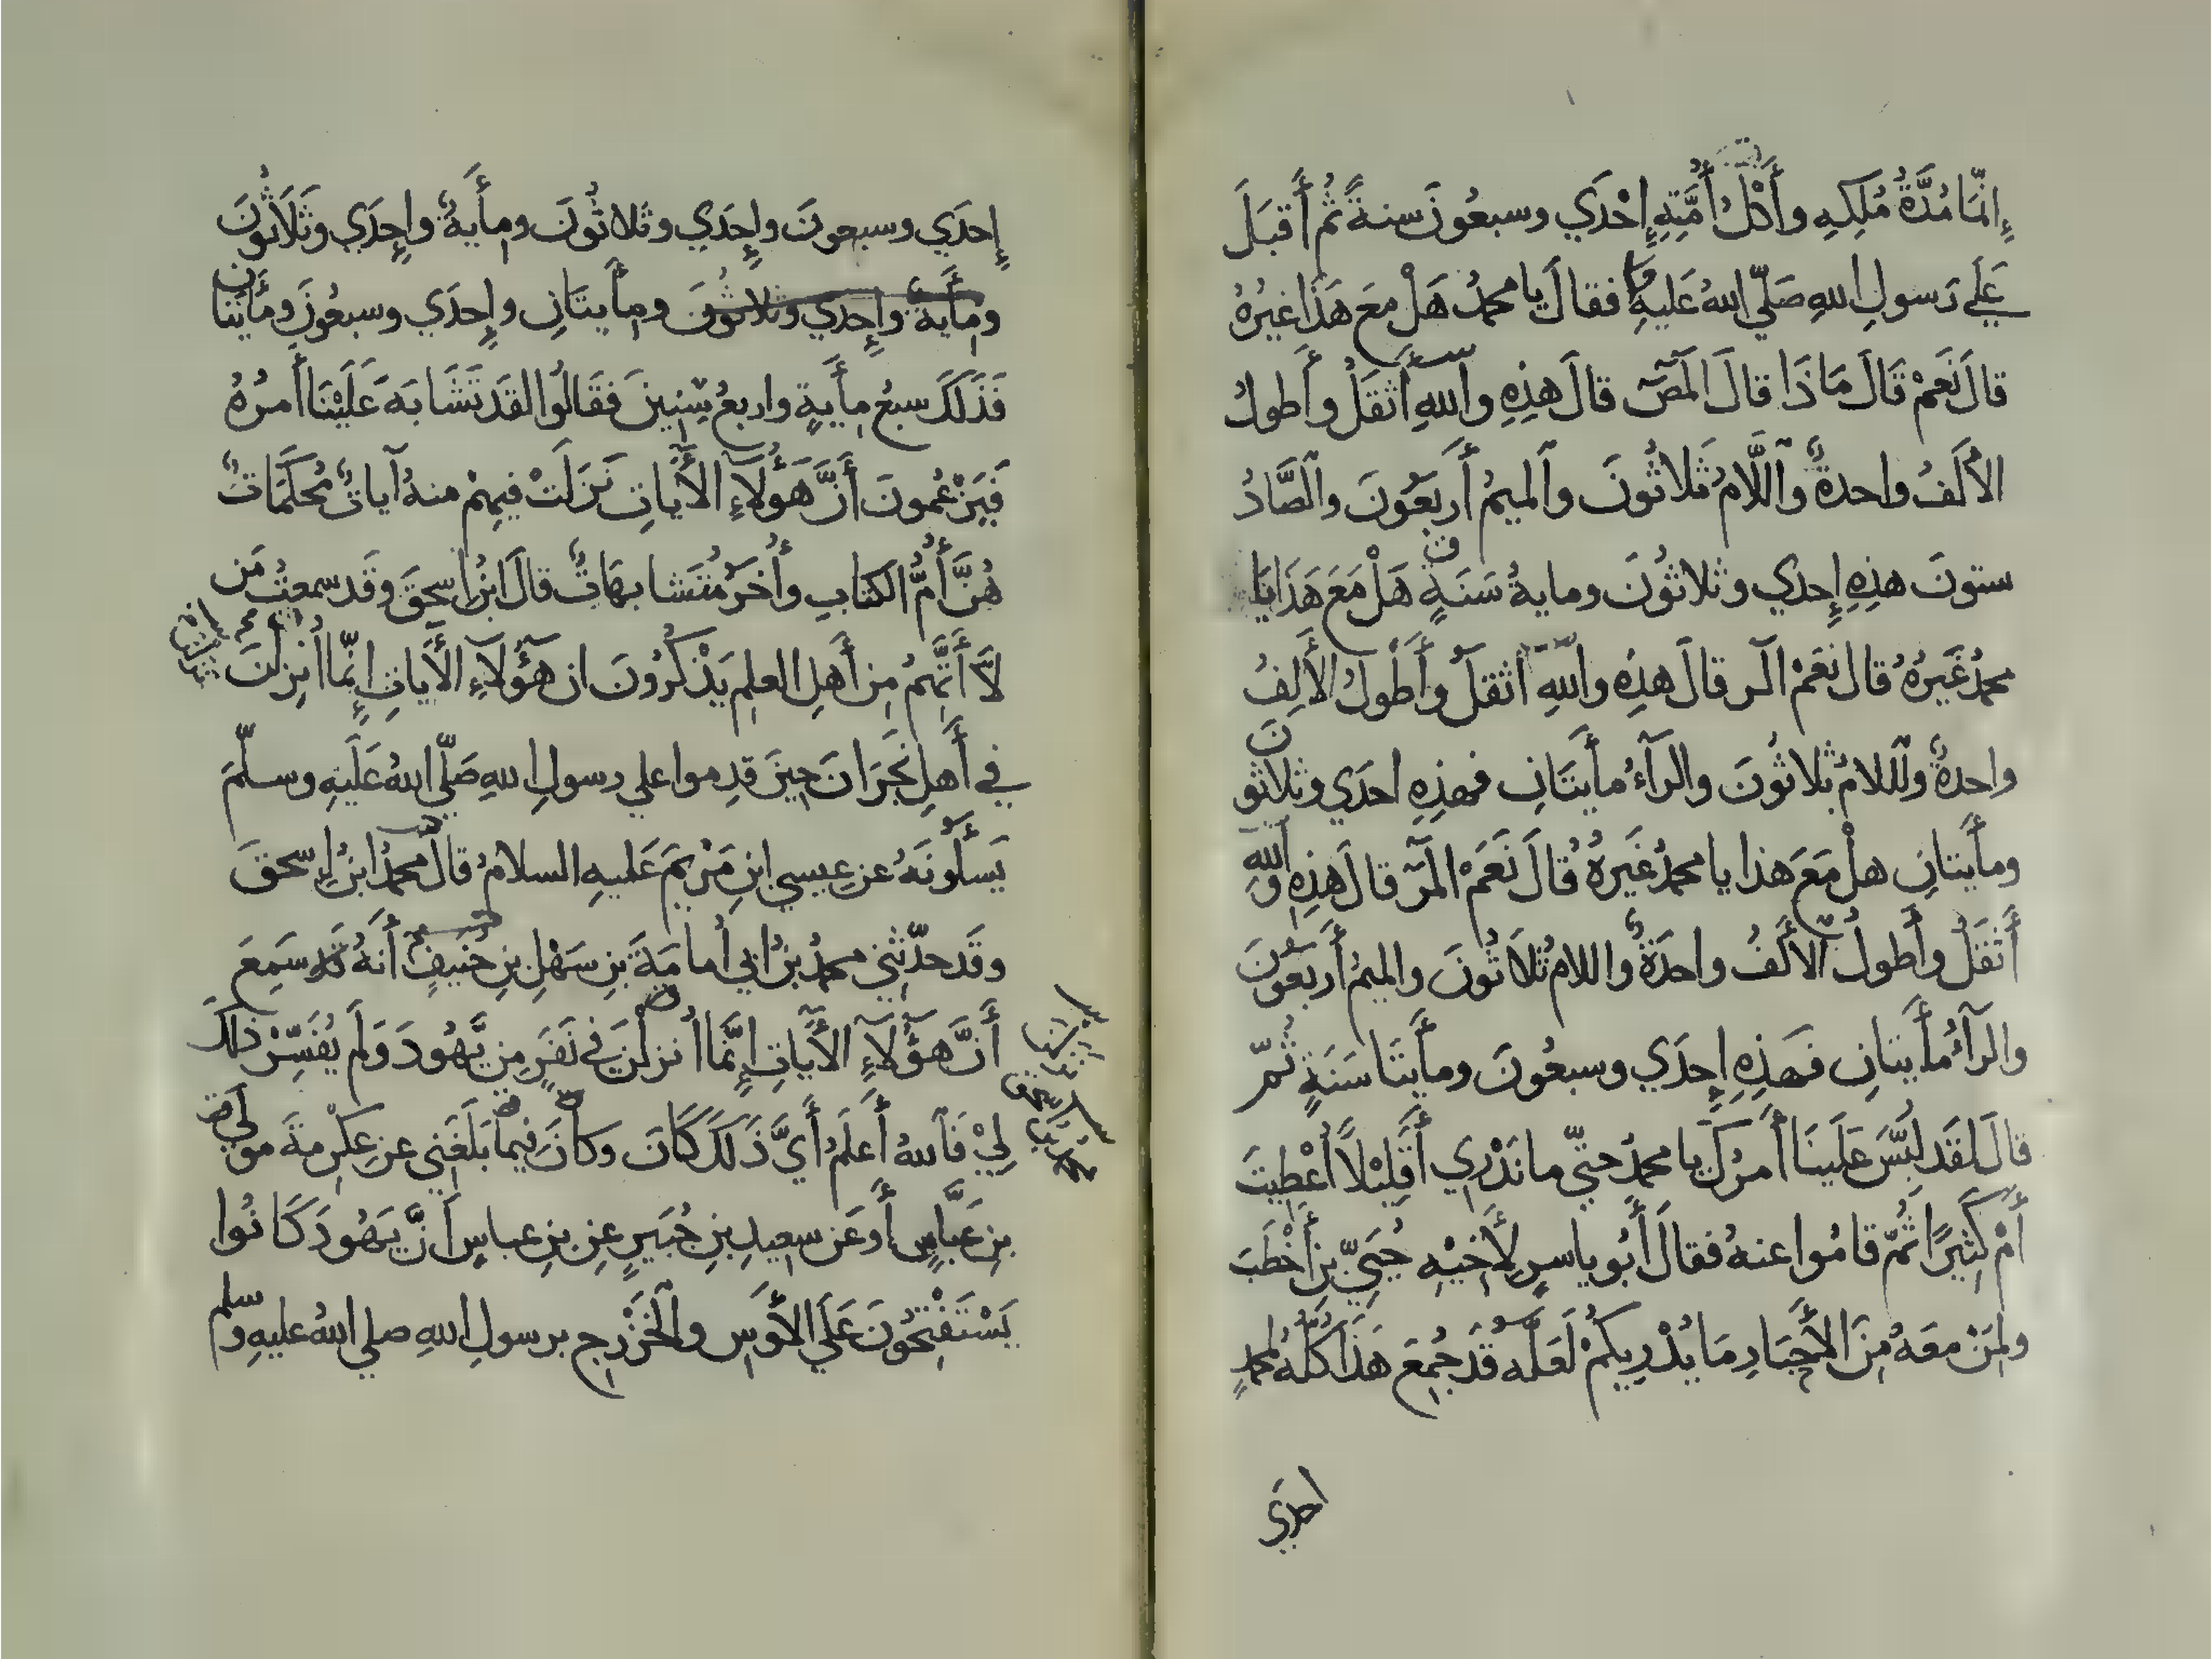 إِنَّمَا مُدَّةُ مُلْكِهِ وأُكْلُ أُمَّتِهِ إِحْدَي وسبعُونَ سنةً ثُمَّ أَقبَلَ
عَلَي رَسولِ اللهِ صَلّي اللهُ عَليهِ فقالَ يا محمدُ هَلْ معَ هَذَا غيرُهُ
قالَ نَعَمْ قَالَ مَاذَا قالَ المٓصٓ قالَ هذِهِ واللهِ أَثقَلُ وأَطولُ
الأَلَفُ واحدةٌ واللَّامُ ثَلاثُونَ والميمُ أَربَعُونَ والصَّادُ
ستونَ هذِهِ إِحدي وثلاثُونَ ومايةُ سَنَةٍ هَلْ مَعَ هَذَا يَا
محمدُ غَيرُهُ قالَ نَعَمْ الٓر قالَ هذِهِ واللهِ اثقلُ وأَطْولُ الأَلِفُ
واحدةٌ واللامُ ثلاثُونَ والرآءُ مأيتَانِ فهذِهِ احدَي وثلاثُونَ
ومأيتانِ هلْ مَعَ هذا يا محمدُ غَيرهُ قَالَ نَعَمْ المٓرٓ قالَ هَذِهِ واللهِ
أَثقَلُ وأَطولُ الأَلَفُ واحدَةٌ واللامُ ثَلاَثُونَ والميمُ أَربَعُونَ
والرآءُ مأيتانِ فَهَذِهِ إِحدَي وسبعُونَ ومأيتَا سَنَةٍ ثُمّ
قالَ لقَد لُبِّسَ عَلَينَا أَمرُكَ يا محمدُ حتّي ما نَدْرِي أَقَلِيْلاً أُعْطِيتَ
أَمْ كَثِيرًا ثُمَّ قامُوا عنهُ فقالَ أَبُو ياسرٍ لِأَخِيْهِ حُيَيِّ بنِ أَخْطَبَ
ولِمَنْ معَهُ مِنَ الأَحبَارِ مَا يُدْرِيكُمْ لَعَلَّه قَد جُمِعَ هَذَا كُلُّه لمحمدٍ
احدي
إِحدَي وسبعونَ وإِحدَي وثلاثُونَ ومأَيةٌ وإِحدَي وثَلَاثُونَ
ومأَيةٌ وإِحدي وثلاثُونَ ومأَيتَانِ وإِحدَي وسبعُونَ ومأَيتَانِ
فَذَلَكَ سبعُ مأَيةٍ واربعُ سِنِينَ فَقَالُوا لقَد تَشَابَهَ عَلَيْنَا أَمرُهُ
فَيَزْعُمونَ أَنَّ هَؤُلَاءِ الأَياتِ نَزَلَتْ فيهِمْ منهُ آياتٌ مُحكَمَاتٌ
هُنَّ أُمُّ الكتابِ وأُخَرُ مُتَشابهَاتٌ قالَ ابنُ اسحقَ وقَد سمعتُ مَن
لاَ أَتَّهِمُ مِن أَهلِ العلِمِ يَذْكُرُونَ ان هَؤُلَاءِ الأَياتِ إِنّما أُنزِلنَ
في أَهلِ نَجرَانَ حِينَ قدِموا علي رسولِ اللهِ صَلّي اللهُ عَلَيهِ وسلّمَ
يَسأَلُونَهُ عن عِيسي ابنِ مَرْيمَ عَليهِ السلامُ قالَ محمدُ ابنُ إسحقَ
وقَد حدّثَنِي محمدُ بنُ ابِي أُمامَةَ بنِ سَهْلِ بنِ حُنيفٍ أَنهُ قَد سَمِعَ
أَنَّ هَؤُلَآءِ الأَياتِ إِنَّما أُنزلنَ في نَفَرٍ مِن يَّهُودَ وَلَم يُفَسِّرْ ذلكَ
لِيْ فَاللهُ أَعلَمُ أَيَّ ذَلَكَ كَانَ وَكانَ فيما بَلَغَنِي عن عِكْرِمَةَ مَولَي
بنِ عَبَّاسٍ أَو عَن سعيدِ بنِ جُبَيرٍ عنِ بنِ عباسٍ أَنَّ يَهُودَ كَانُوا
يَسْتَفْتِحُونَ عَلَي الأَوسِ والخَزْرجِ برسولِ اللهِ صلي اللهُ عليهِ وسلم